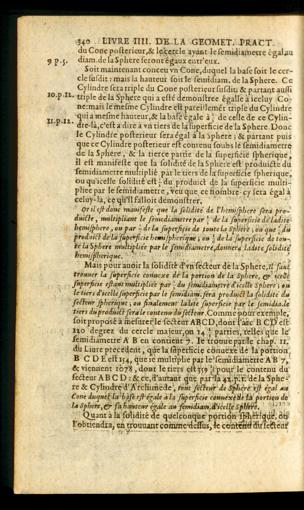 340 LIVRE IIII. DE LA GEOMET. PRACT.
du Cone posterieur, & le cercle ayant le semidiametre égal au
9 p. 5. diam. de la Sphere seront égaux entr'eux.
Soit maintenant conceu vn Cone, duquel la base soit le cer-
cle susdit; mais la hauteur soit le semidiam. de la Sphere. Ce
Cylindre sera triple du Cone posterieur susdit & partant aussi
10. p. 12. triple de la Sphere qui a esté demonstree égalle à iceluy Co-
ne: mais le mesme Cylindre est pareillement triple du Cylindre
qui a mesme hauteur, & la base égale à 1/3 de celle de ce Cylin-
11. p. 12. dre-là, c'est à dire à vn tiers de la superficie de la Sphere. Donc
le Cylindre posterieur sera égal à la sphere; & partant puis
que ce Cylindre posterieur est contenu soubs le semidiametre
de la Sphere, & la tierce partie de la superficie spherique,
il est manifeste que la solidité de la Sphere est producte du
semidiametre multiplié par le tiers de la superficie spherique,
ou qu'icelle solidité est 1/3 du produict de la superficie multi-
plice par le semidiametre, veu que ce nombre-cy sera égal à
celuy-là, ce qu'il falloit démonstrer.
Or il est donc manifeste que la solidité de l'hemisphere sera pro-
ducte, multipliant le semidiametre par 1/3 de la superficie de ladite
hemisphere, ou par de la superficie de toute la Sphere, ou que du
produict de la superficie hemispherique; ou 1/3 de la superficie de tou-
te la Sphere multipliée par le semidiametre, donnera ladite solidité
hemispherique.
Mais pour auoir la solidité d'vn secteur de la Sphere, il faut
trouuer la superficie conuexe de la portion de la Sphere, & icelle
superficie estant multipliée par 1/3 du semidiametre d'icelle Sphere; ou
le tiers d'icelle superficie par le semidiam. sera producte la solidité du
secteur spherique; ou finalement ladite superficie par le semidia. le
tiers du product sera le contenu du secteur. Comme pour exemple,
soit proposé à mesurer le secteur ABCD, dont l'arc BCD est
120 degrez du cercle maieur, ou 14 2/3 parties, telles que le
semidiametre A B en contient 7. Ie trouue par le chap. 11.
du Liure precedent, que la superficie conuexe de la portion,
B C D E est 154, que ie multiplie par le semidiametre AB 7,
& viennent 1078, dont le tiers est 359 1/3 pour le contenu du
secteur ABCD: & ce, d'autant que par la 42. p. 1. de la Sphe-
re & Cylindre d'Archimede, tout secteur de Sphere est égal au
Cone duquel la base est égale à la superficie conuexe de la portion de
la Sphere, & sa hauteur égale au semidiam. d'icelle Sphere.
Quant à la solidité de quelconque portion spherique, on
l'obtiendra, en trouuant comme dessus, le contenu du secteur